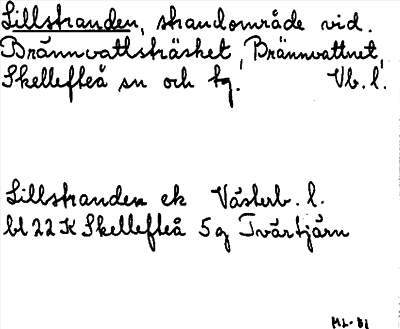 Lillstranden, strandområde vid.
Brännvattsträsket, Brännvattnet,
Skellefteå sn och tg. Vb. l.
Lillstranden ek Västerb. l.
bl 22 K Skellefteå 5 g Tvärtjärn